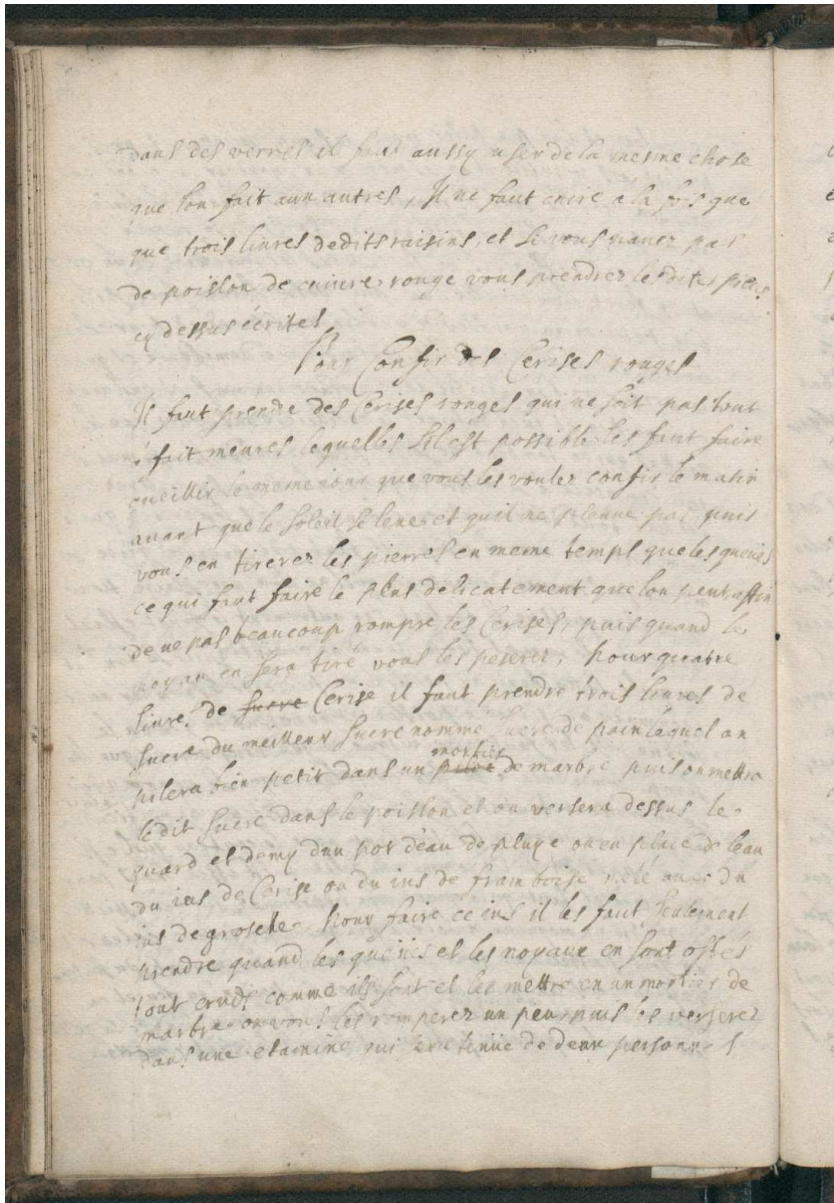 dans des verres il faut aussy user de la mesme chose
que lon fait aux autres, Il ne faut cuire a la fois que
que trois livres dedits raisins, et si vous navez pas
de poislon de cuivre rouge vous prendrez lesdites
cy dessus écrites
Pour Confir des Cerises rouges
Il faut prende des Cerises rouges qui ne soit pas tout
a fait meures lequelles sil est possible les faut faire
cueillir le meme iour que vous les voulez confir le matin
avant que le soleil se leve et quil ne pleuue pas puis
vous en tirerez les pierres en meme temps que les queües
ce qui faut faire le plus delicatement que lon peut affin
de ne pas beaucoup rompre les Cerises, puis quand le
noyau en sera tiré vous les peserez, pour quatre
livres de sucre Cerise il faut prendre trois livres de
sucre du meilleur sucre nomme sucre de pain laquel on
pilera bien petit dans un pilot mortier de marbre puis on mettra
le dit sucre dans le poislon et on versera dessus le
quard et demy dun pot d'eau de pluye ou en place de leau
du ius de Cerise ou du ius de framboise melé avec du
ius de groselle pour faire ce ius il les faut seulement
prendre quand les queües et les noyaux en sont ostés
tout cruds comme ils soit et les mettre en un mortier de
marbre ou vous les romperez un peu puis les verserez
dans une etamine qui tenüe de deux personnes